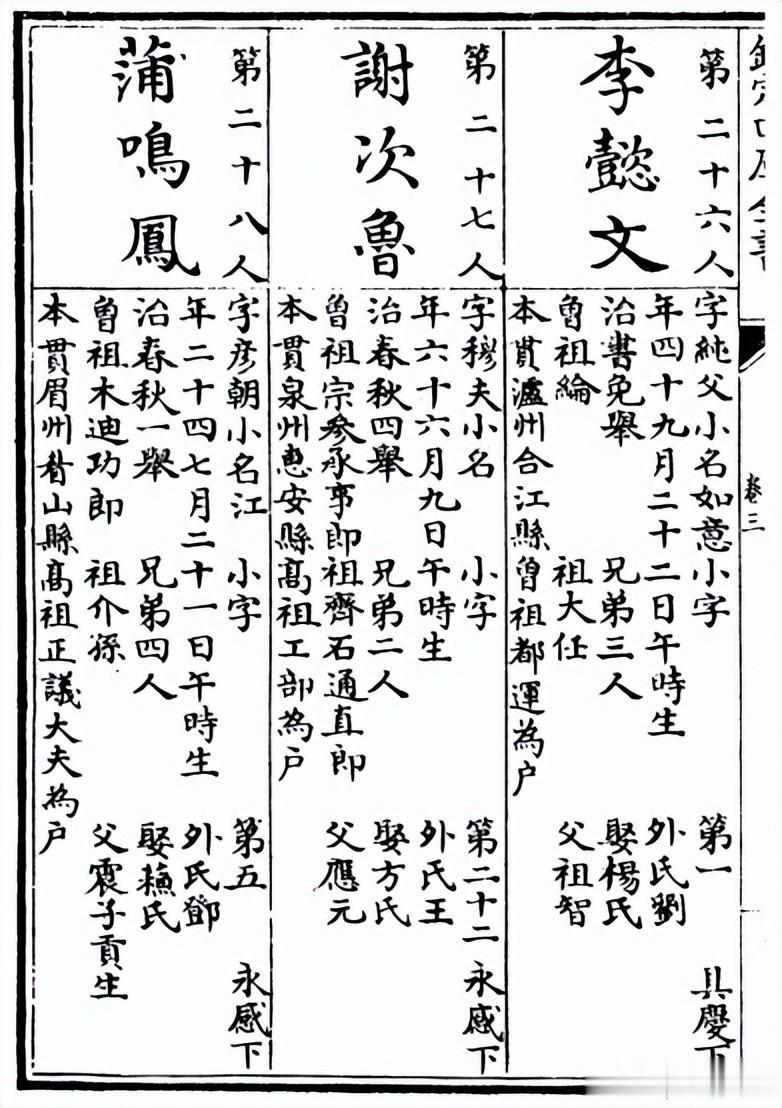 卷三
第二十六人
李懿文
字純父小名如意小字 第一 具慶下
年四十九月二十二日午時生 外氏劉
治書免舉 兄弟三人 娶楊氏
曾祖綸 祖大任 父祖智
本貫瀘州合江縣曾祖都運為戶
第二十七人
謝次魯
字穆夫小名 小字 第二十二 永感下
年六十六月九日午時生 外氏王
治春秋四舉 兄弟二人 娶方氏
曾祖宗參承事郎祖齊石通直郎 父應元
本貫泉州惠安縣高祖工部為戶
第二十八人
蒲鳴鳳
字彦朝小名江 小字 第五 永感下
年二十四七月二十一日午時生 外氏鄧
治春秋一舉 兄弟四人 娶蘓氏
曾祖木迪功郎 祖介孫 父震子貢生
本貫眉州眷山縣高祖正議大夫為戶